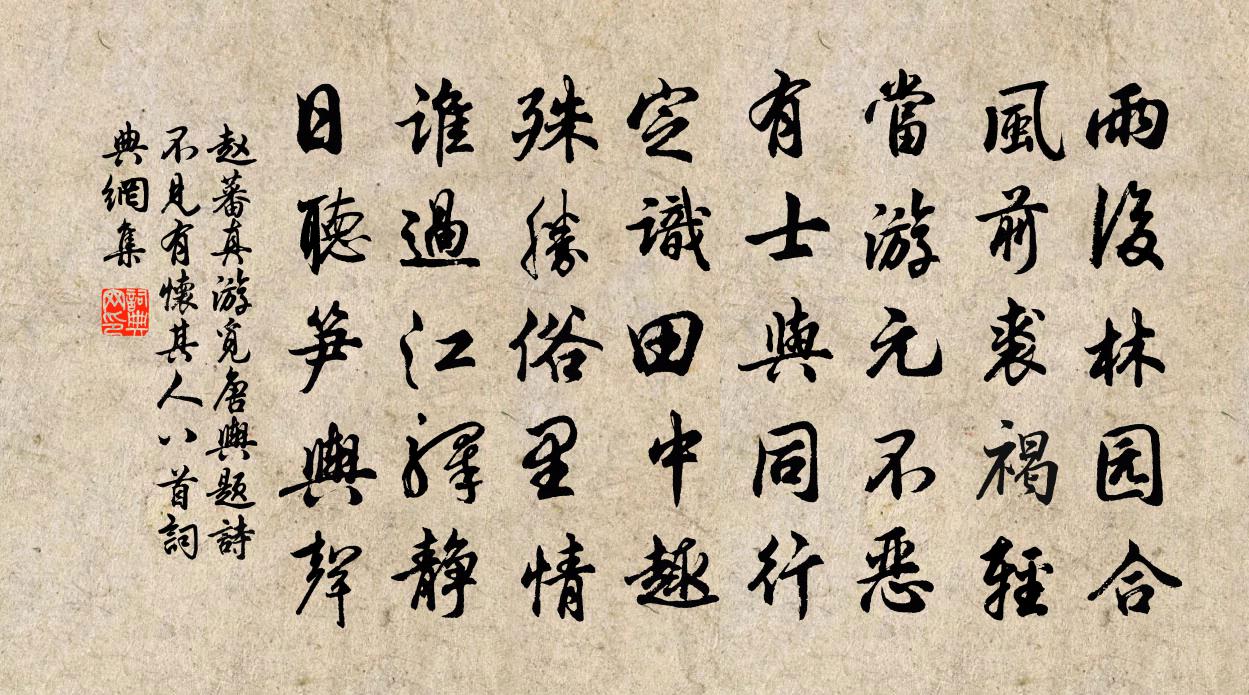 雨後林园合
風前裘褐輕
當游元不惡
有士與同行
定識田中趣
殊勝俗里情
誰過江驛静
日聽笋輿聲
赵蕃真游覓唐輿題詩
不見有懷其人八首詞
典網集
詞典
网印